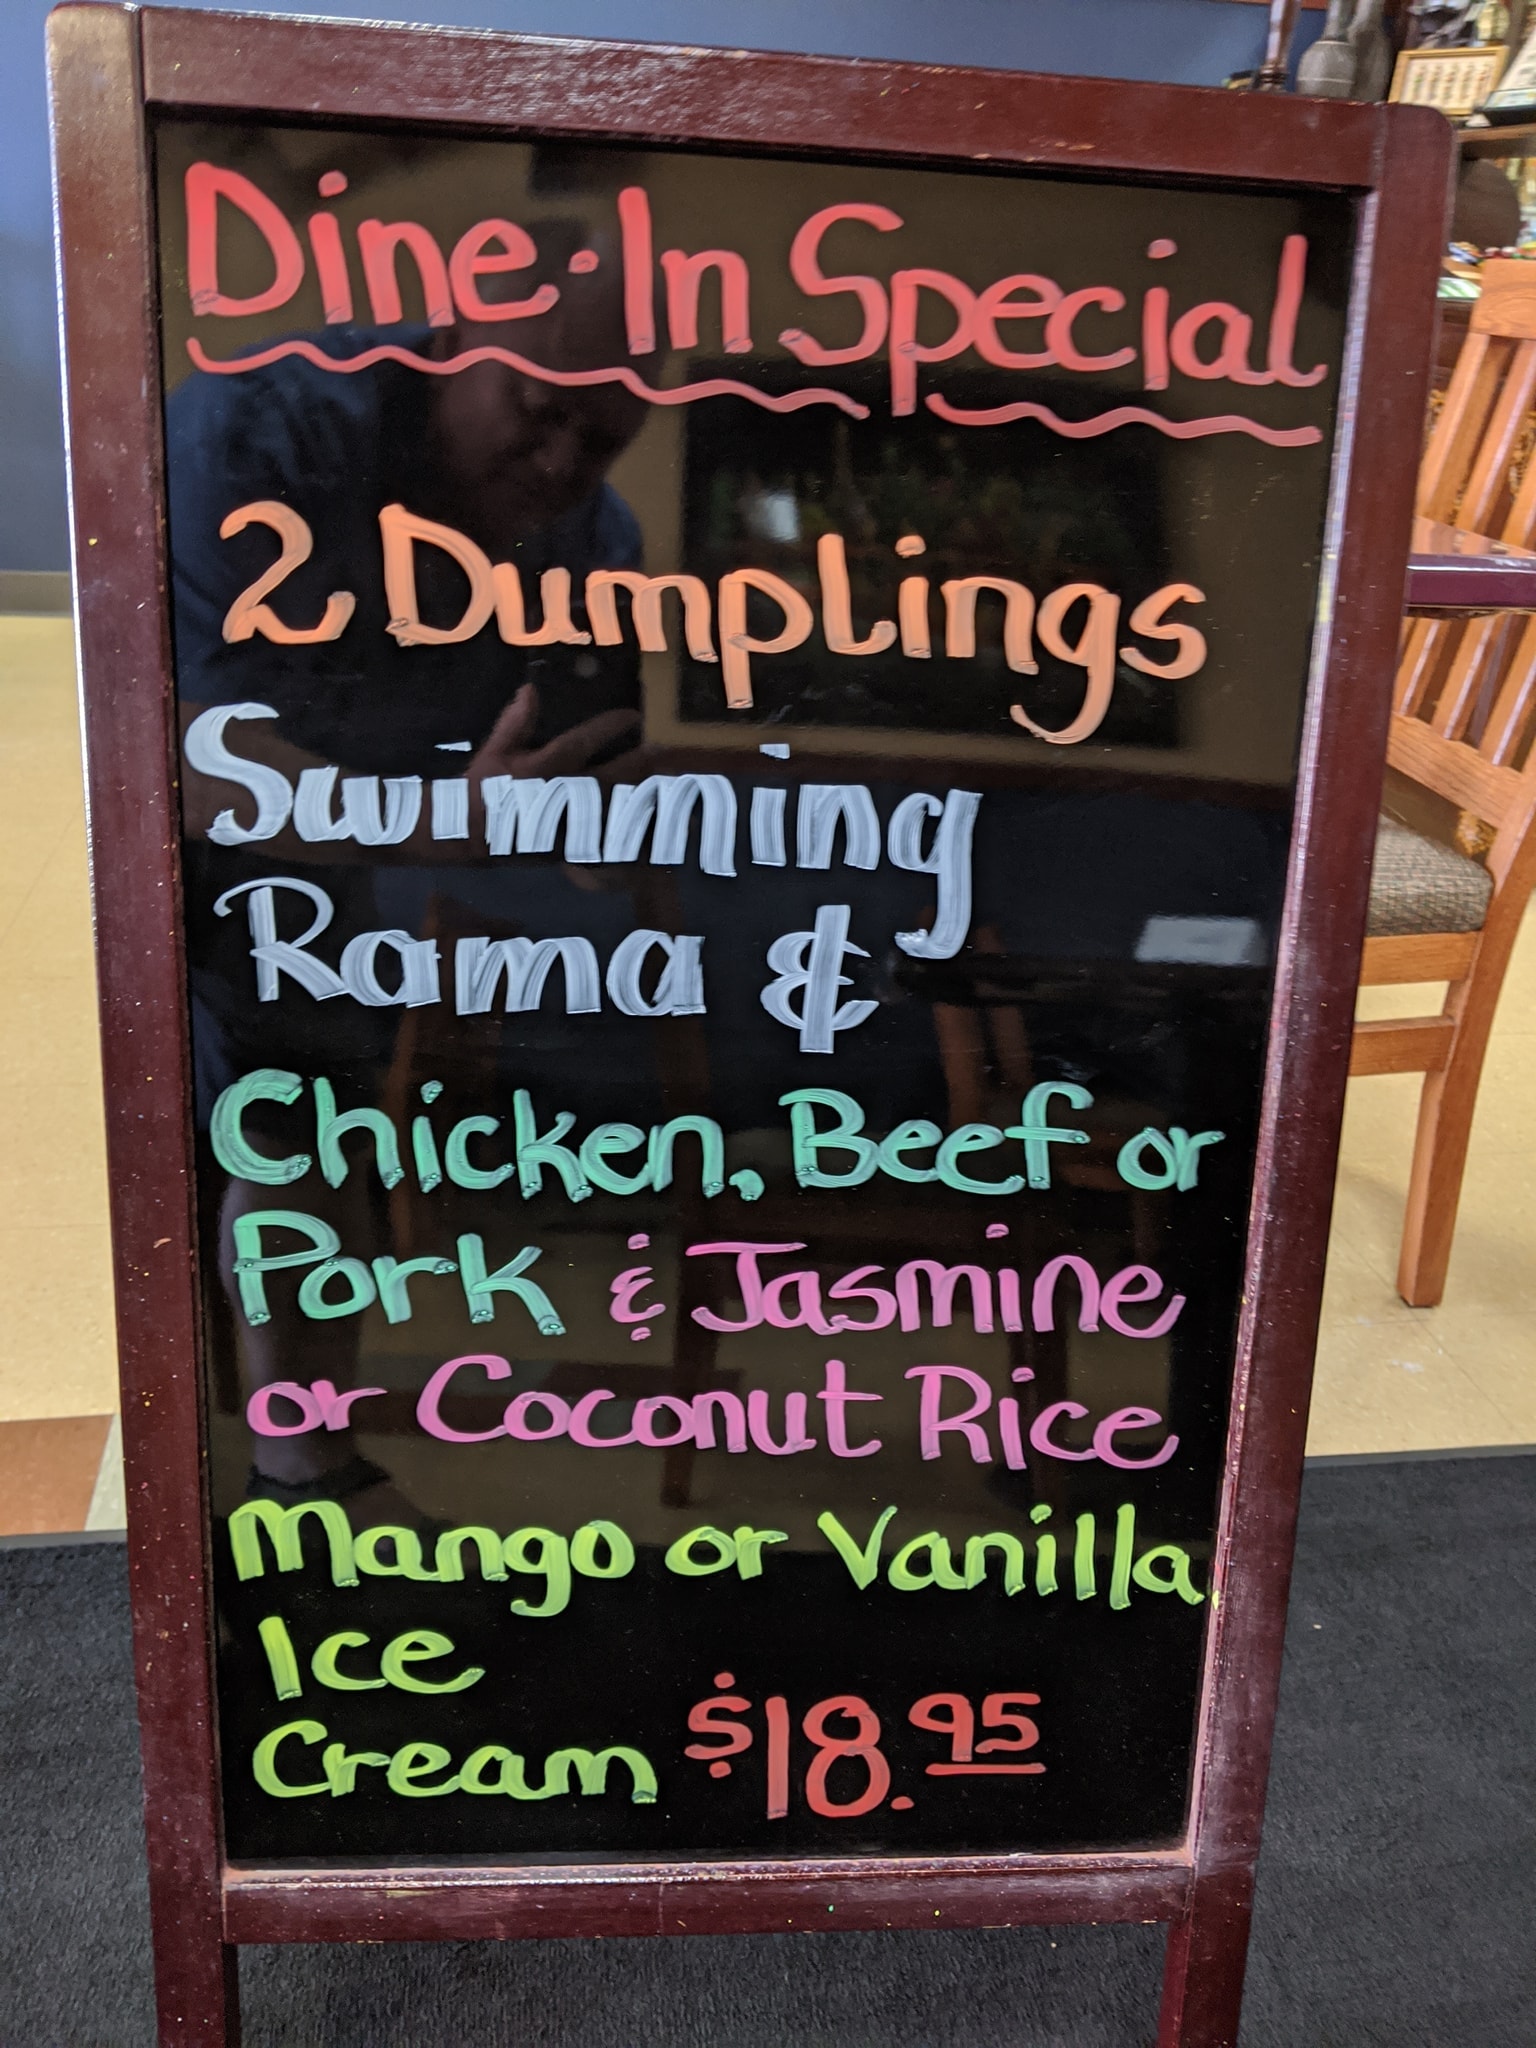 Dine-In Special
2 Dumplings
Swimming
Rama &
Chicken, Beef or
Pork & Jasmine
or Coconut Rice
Mango or Vanilla
Ice
Cream $18.95